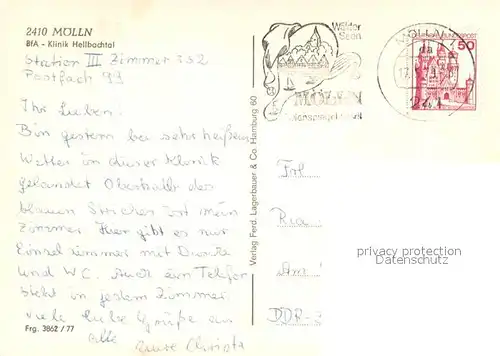 2410 MÖLLN
BfA - Klinik Hellbachtal
Station III Zimmer 352
Postfach 99
Ihr Lieben!
Bin gestern bei sehr heißem
Wetter in dieser Klinik
gelandet Oberhalb des
blauen Striches ist mein
Zimmer. Hier gibt es nur
Einzelzimmer mit Dusche
und WC. Auch ein Telefon
steht in jedem Zimmer
viele liebe Grüße an
alle Eure Christa
Frg. 3862 / 77
Verlag Ferd. Lagerbauer & Co. Hamburg 60
Wälder
Seen
MÖLLN
MÖLLN
da
241
BUNDESPOST
50
Frl
Ria
Am
DDR-
privacy protection
Datenschutz